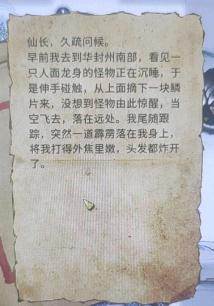 仙长，久疏问候。
早前我去到华封州南部，看见一
只人面龙身的怪物正在沉睡，于
是伸手碰触，从上面摘下一块鳞
片来，没想到怪物由此惊醒，当
空飞去，落在远处。我尾随跟
踪，突然一道霹雳落在我身上，
将我打得外焦里嫩，头发都炸开
了。